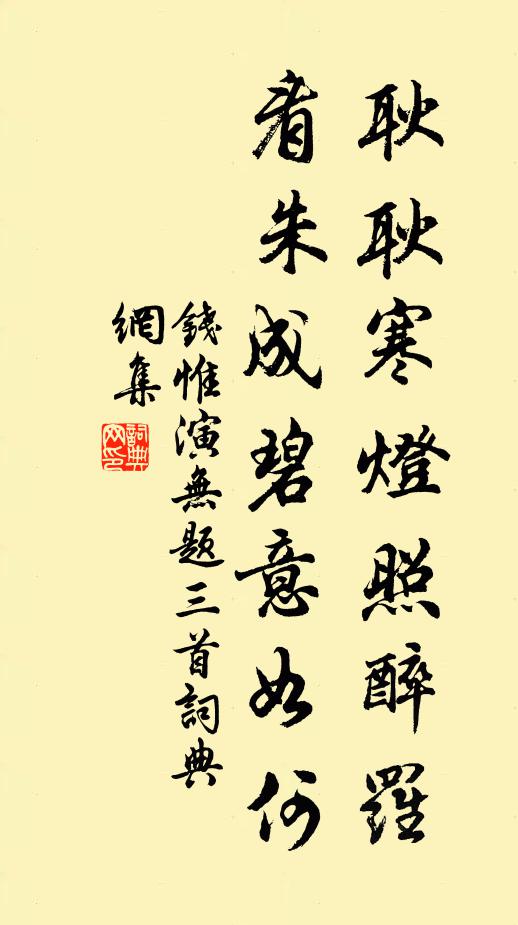 耿耿寒燈照醉羅
看朱成碧意如何
錢惟演無題三首詞典
網集
詞典
网印